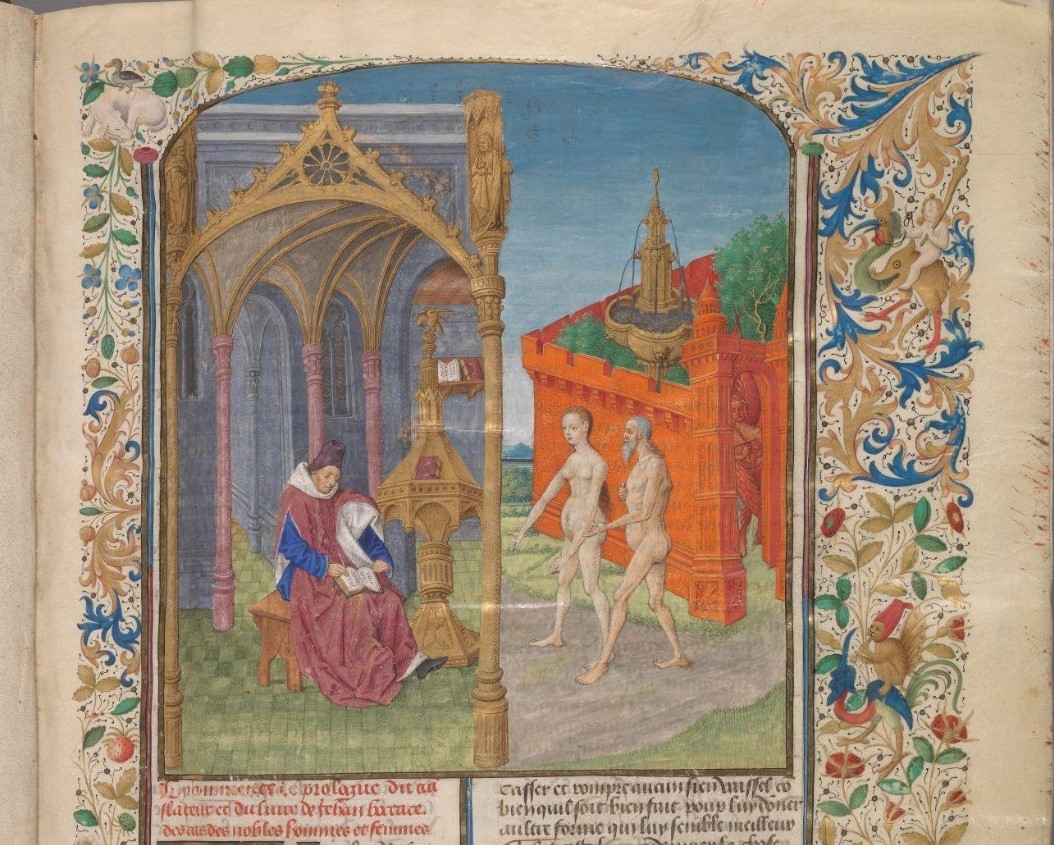 commence le prologue du
slateur et du livre de Jehan boccace
des cas des nobles hommes et femmes
casser et rompre aucun sien vaissel co
bien quil soit bien fait pour luy donner
aultre forme qui luy semble meilleur